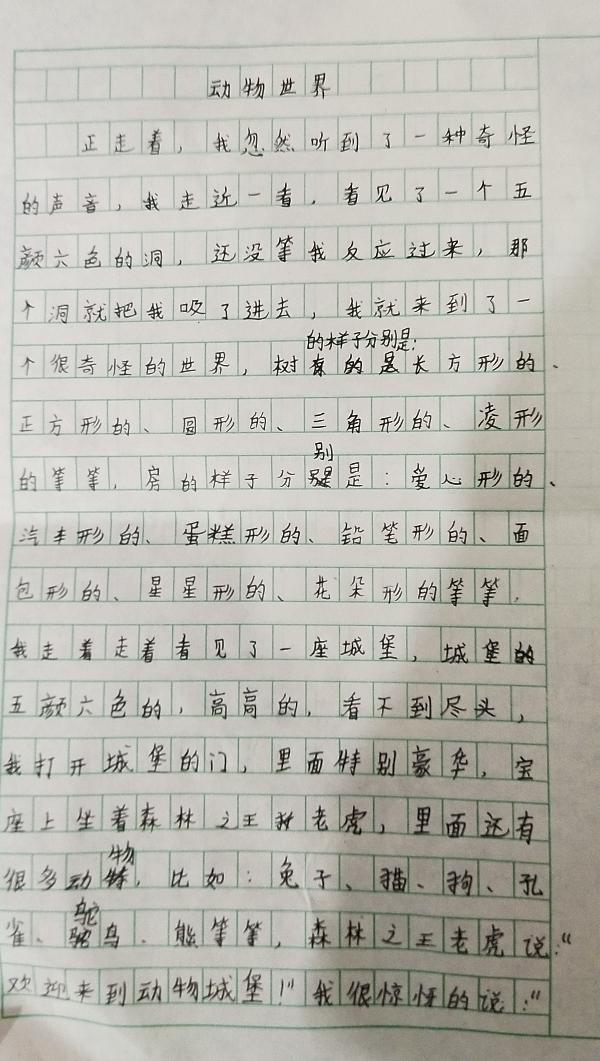 动物世界
正走着，我忽然听到了一种奇怪
的声音，我走近一看，看见了一个五
颜六色的洞，还没等我反应过来，那
个洞就把我吸了进去，我就来到了一
的样子分别是：
个很奇怪的世界，树有的是长方形的、
正方形的、圆形的、三角形的、凌形
别
的等等，房的样子分是：爱心形的、
汽车形的、蛋糕形的、铅笔形的、面
包形的、星星形的、花朵形的等等，
我走着走着看见了一座城堡，城堡的
五颜六色的，高高的，看不到尽头，
我打开城堡的门，里面特别豪华，宝
座上坐着森林之王老虎，里面还有
物
很多动，比如：兔子、猫、狗、孔
鸵
雀、鸟、熊等等，森林之王老虎说：“
欢迎来到动物城堡！”我很惊讶的说：“